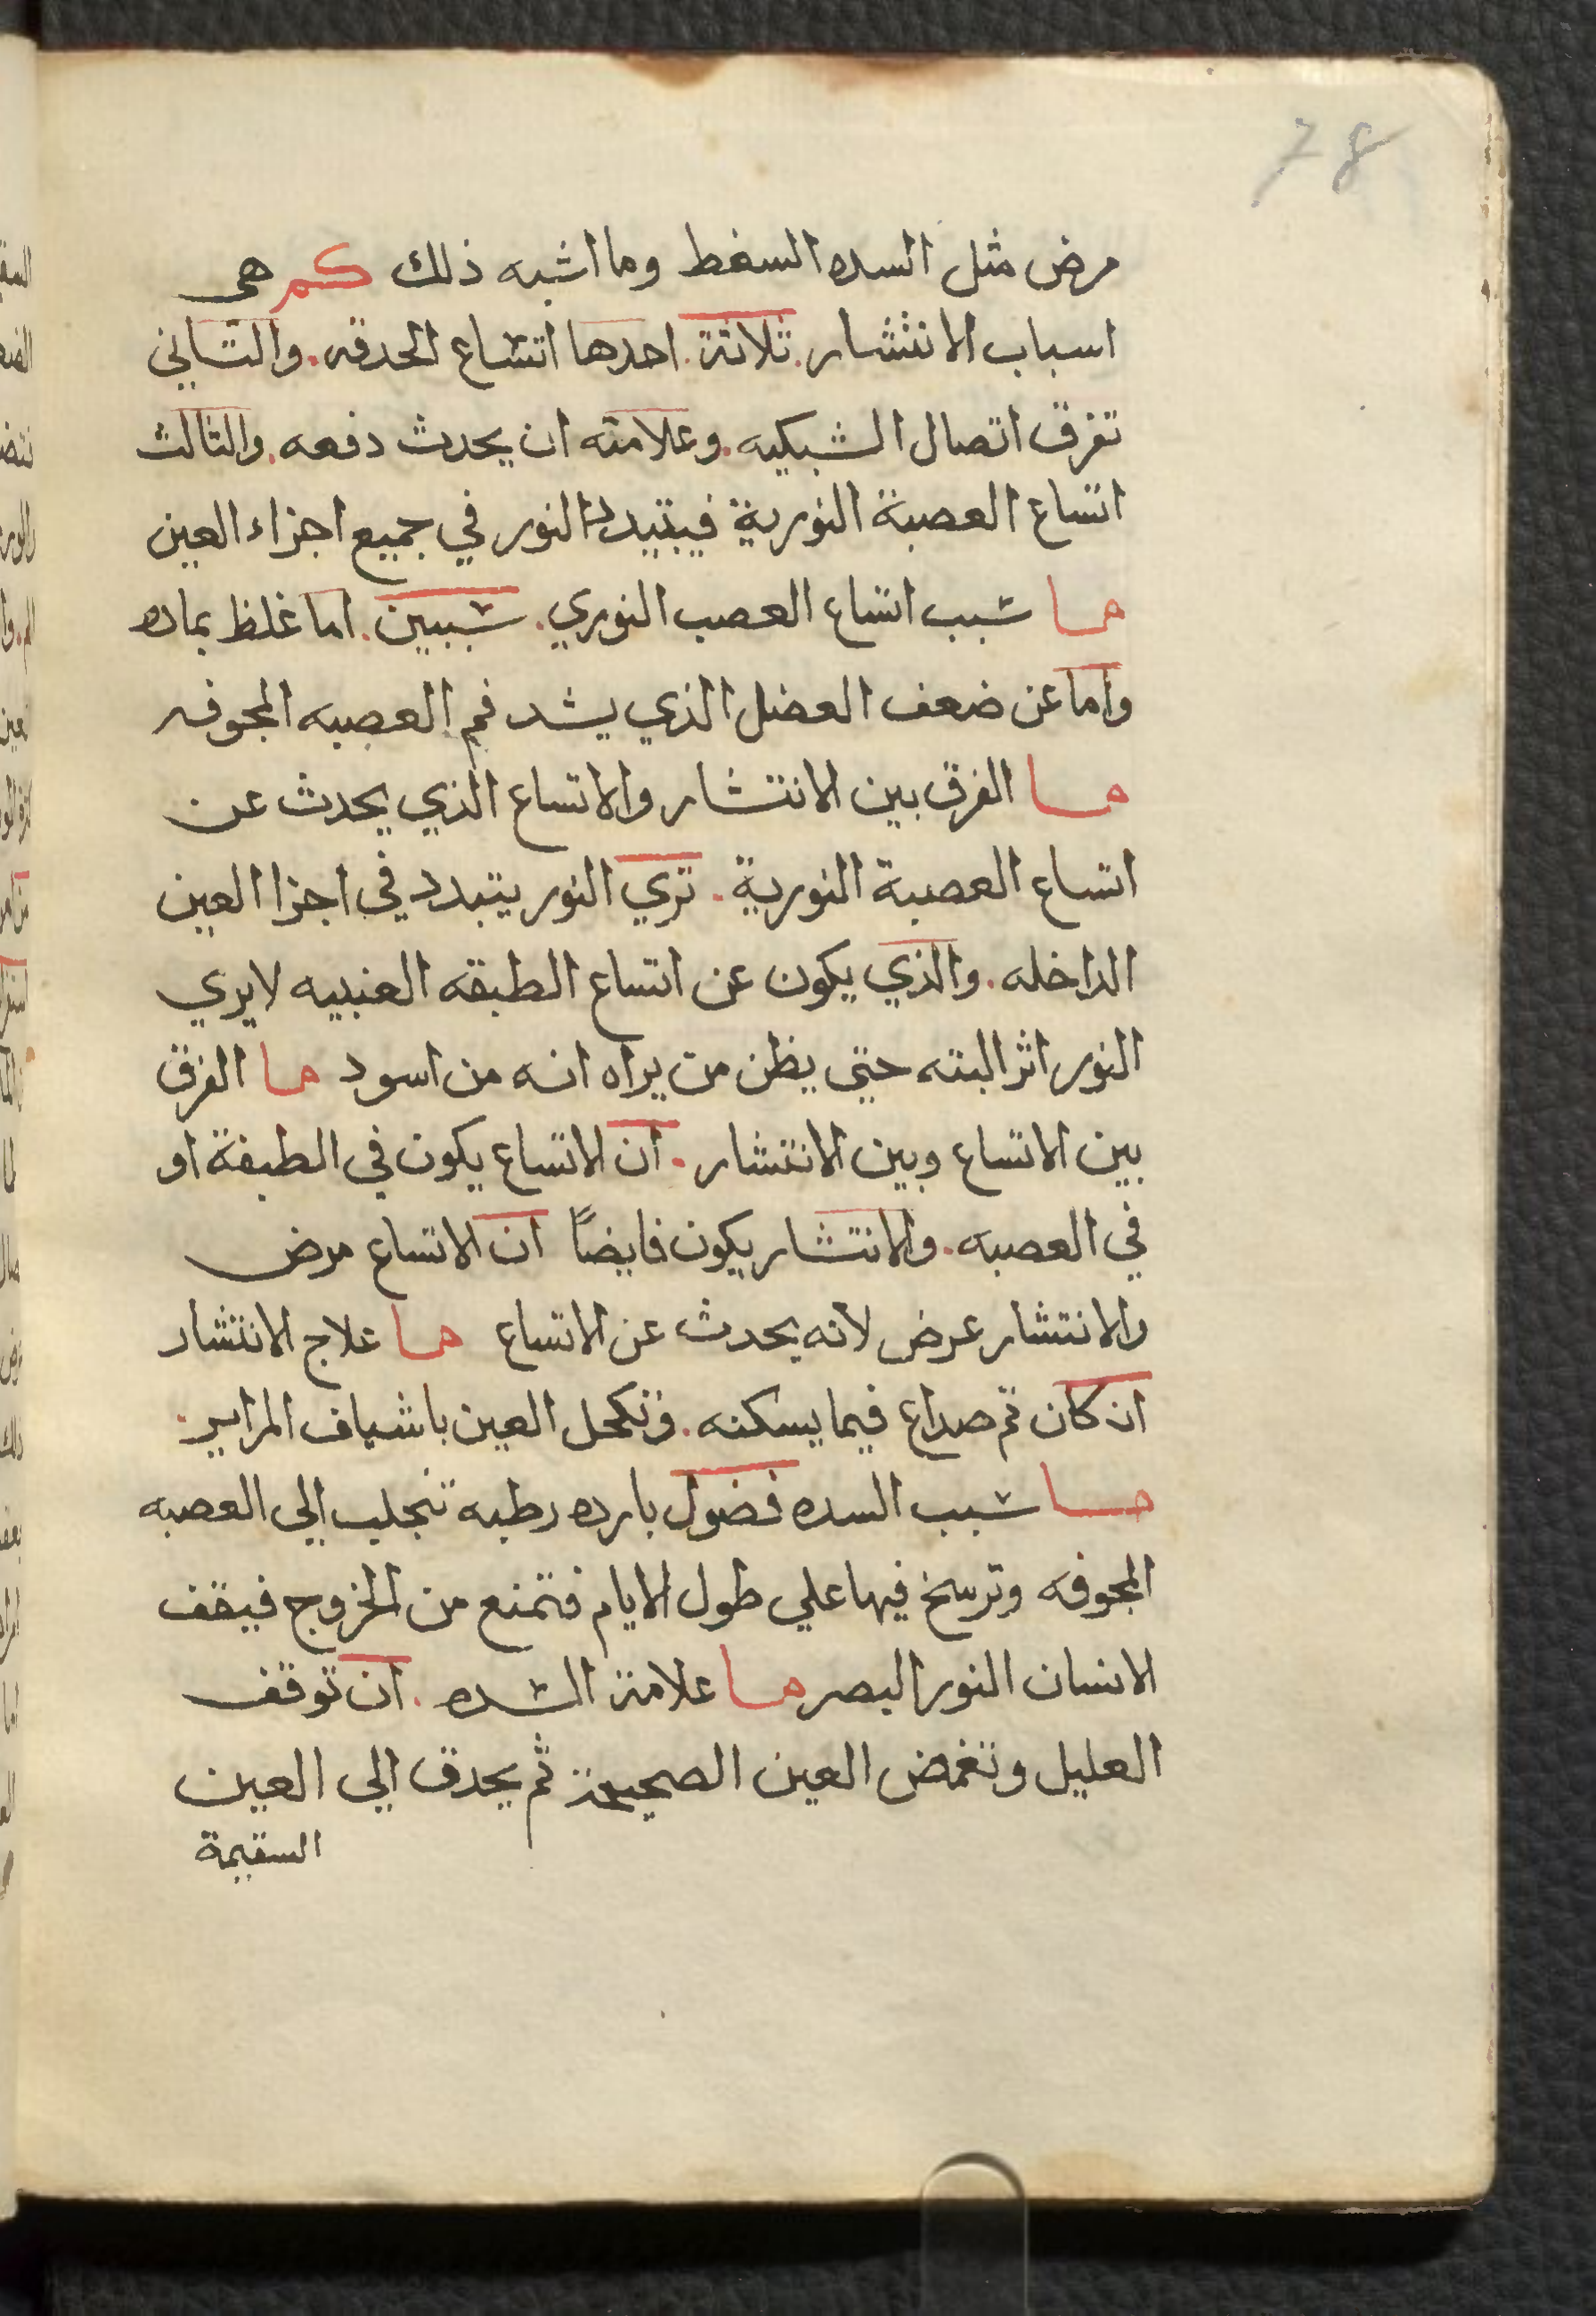 78
مرض مثل السده السغط وما اشبه ذلك كم هى
اسباب الانتشار. تلاثة. احدها اتشاع الحدقه. والتاني
تفرق اتصال الشبكيه. وعلامته ان يحدث دفعه. والتالث
اتساع العصبة النورية فيتبدد النور في جميع اجزاء العين
ما سبب اتساع العصب النوري. سببين. اما غلظ بماده
واما عن ضعف العضل الذي يشد فم العصبه المجوفه
ما الفرق بين الانتشار والاتساع الذي يحدث عن
اتساع العصبة النورية. تري النور يتبدد في اجزا العين
الداخله. والذي يكون عن اتساع الطبقه العنبيه لا يري
النور اثر البته حتى يظن من يراه انه من اسود ما الفرق
بين الاتساع وبين الانتشار. ان الاتساع يكون في الطبقة او
في العصبه. والانتشار يكون فايضاً ان الاتساع مرض
والانتشار عرض لانه يحدث عن الاتساع ما علاج الانتشار
ان كان تم صداع فيما يسكنه. وتكحل العين باشياف المراير.
ما سبب السده فضول بارده رطبه تنجلب الى العصبه
المجوفه وترسخ فيها علي طول الايام فتمنع من الخروج فيقف
الانسان النور البصر ما علامة الشده. ان توقف
العليل وتغمض العين الصحيحة ثم يحدق الي العين
السقيمة